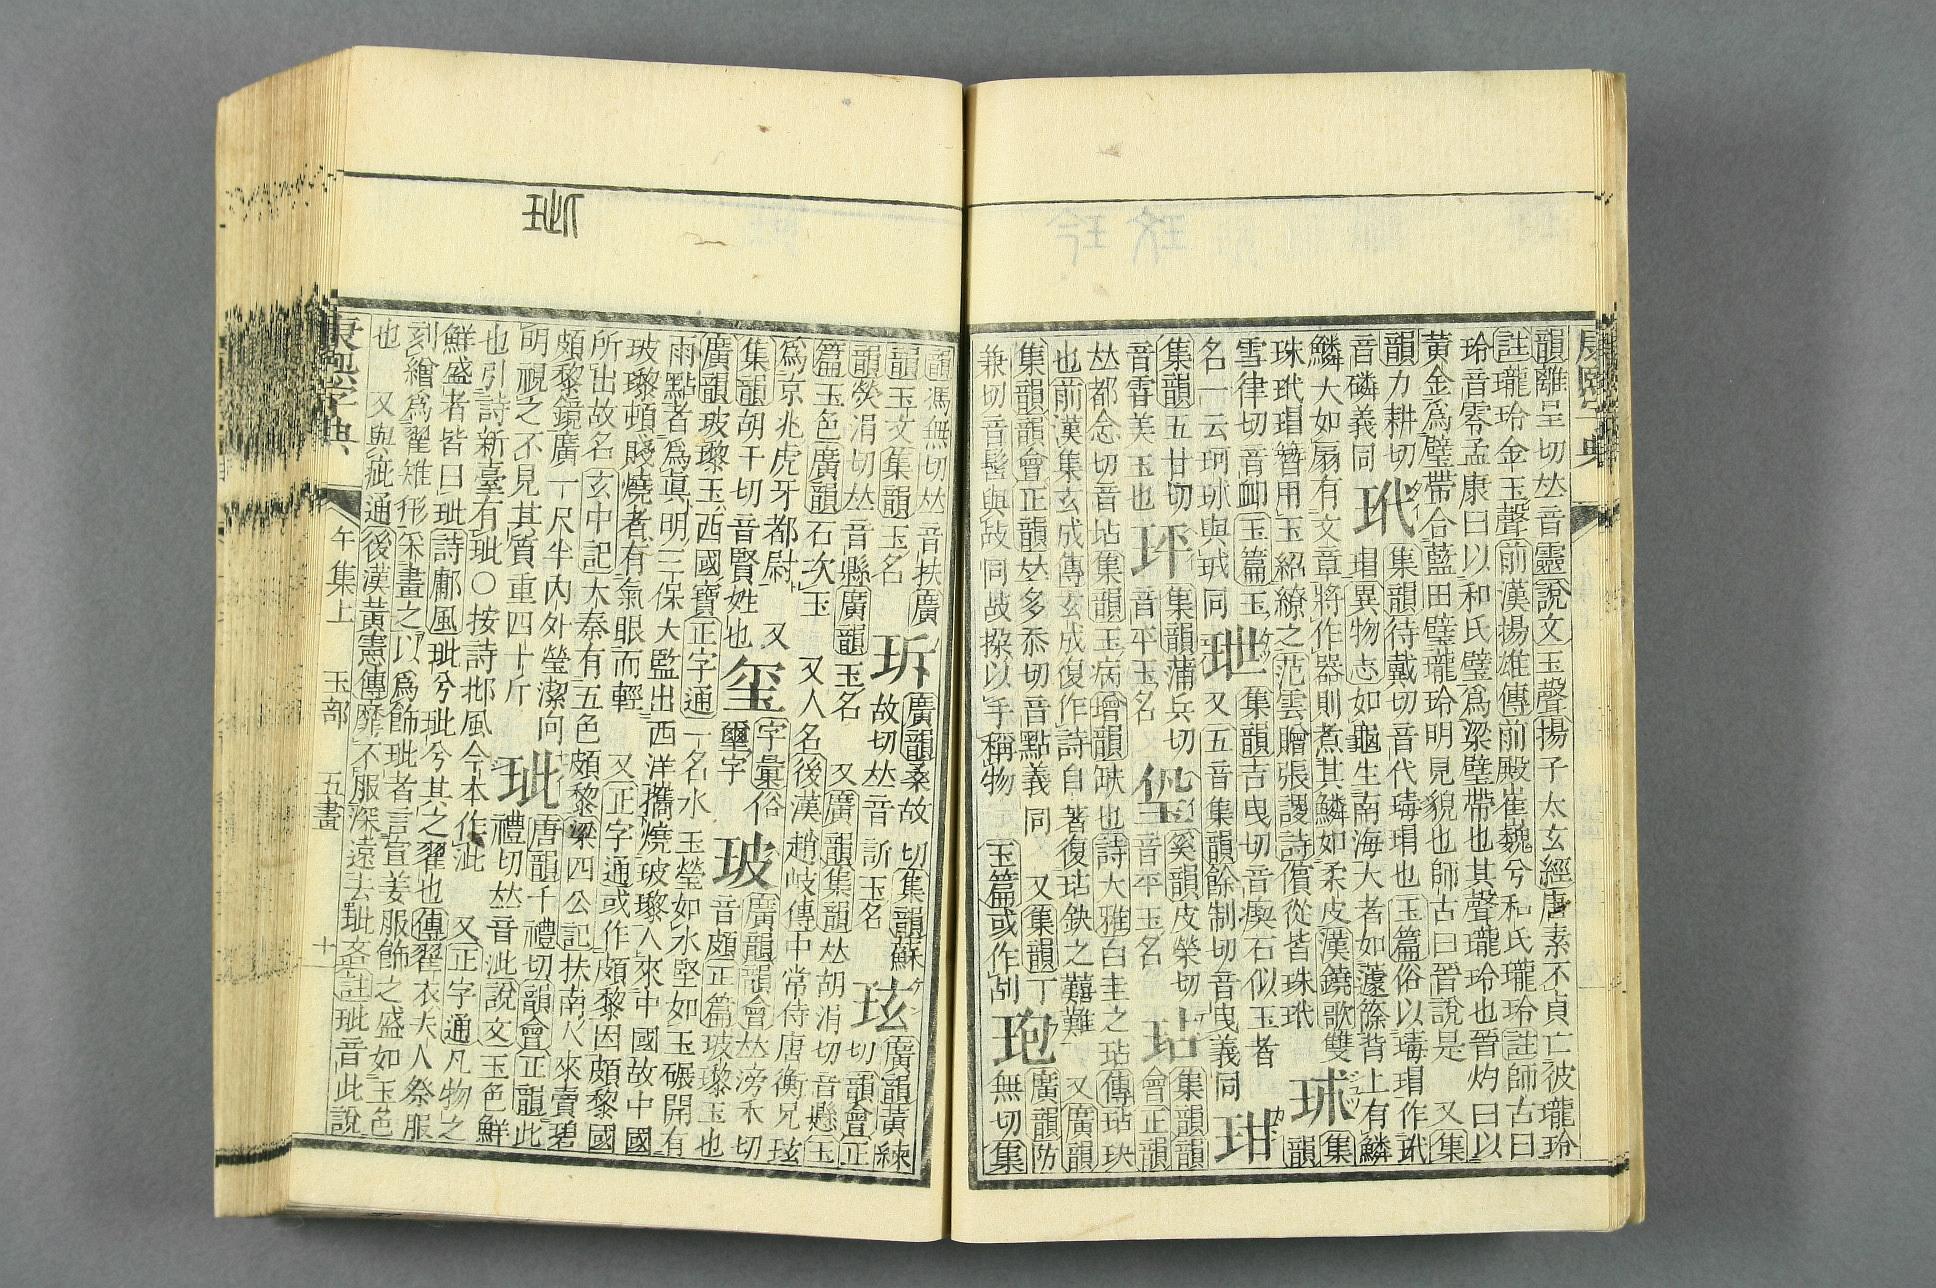 康熙字典
韻離呈切𠀤音靈說文玉聲揚子太玄經唐素不貞亡彼瓏玲
註瓏玲金玉聲前漢揚雄傳前殿崔巍兮和氏瓏玲註師古曰
玲音零孟康曰以和氏璧爲梁璧帶也其聲瓏玲也晉灼曰以
黃金爲璧帶含藍田璧瓏玲明見貌也師古曰晉說是 又集
韻力耕切 玳 集韻待戴切音代瑇瑁也玉篇俗以瑇瑁作玳
音磷義同 瑁異物志如龜生南海大者如蘧篨背上有鱗
鱗大如扇有文章將作器則煮其鱗如柔皮漢鐃歌雙 珬 集
珠玳瑁簪用玉紹繚之范雲贈張謖詩儐從皆珠玳 韻
雪律切音衈玉篇玉 玴 集韻吉曳切音瘈石似玉者
名一云珂珬與珬同 又五音集韻餘制切音曳義同 玵
集韻五甘切 玶 集韻蒲兵切 奚韻皮榮切 玷 集韻
音美玉也 音平玉名 音平玉名 會正韻
𠀤都念切音坫集韻玉病增韻缺也詩大雅白圭之玷傳玷玦
也前漢集玄成傳玄成復作詩自著復玷缺之囏難 又廣韻
集韻韻會正韻𠀤多忝切音點義同 又集韻丁 玸 廣韻防
兼切音髻與敁同敁挆以手稱物 玉篇或作刮 無切集
韻馮無切𠀤音扶廣 㺿 廣韻桑故切集韻蘇 玹 廣韻黃練
韻玉文集韻玉名 故切𠀤音訴玉名 切韻會正
韻熒涓切𠀤音縣廣韻玉名 又廣韻集韻𠀤胡涓切音懸玉
篇玉色廣韻石次玉 又人名後漢趙岐傳中常侍唐衡兄玹
爲京兆虎牙都尉 又
集韻胡千切音賢姓也 玺 字彙俗璽字 玻 廣韻韻會𠀤滂禾切音頗正篇玻瓈玉也
廣韻玻瓈玉西國寶正字通一名水玉瑩如水堅如玉碾開有
雨點者爲眞明三保大監出西洋攜燒玻瓈人來中國故中國
玻瓈頓賤燒者有氣眼而輕 又正字通或作頗黎因頗黎國
所出故名玄中記大秦有五色頗黎梁四公記扶南人來賣碧
頗黎鏡廣一尺半內外瑩潔向 玼 唐韻千禮切韻會正韻此
明視之不見其質重四十斤 禮切𠀤音泚說文玉色鮮
也引詩新臺有玼○按詩邶風今本作泚 又正字通凡物之
鮮盛者皆曰玼詩鄘風玼兮玼兮其之翟也傳翟衣夫人祭服
刻繒爲翟雉形采畫之以爲飾玼者言宣姜服飾之盛如玉色
也 又與疵通後漢黃憲傳靡不服深遠去玼吝註玼音此說
康熙字典 午集上 玉部 五畫 十